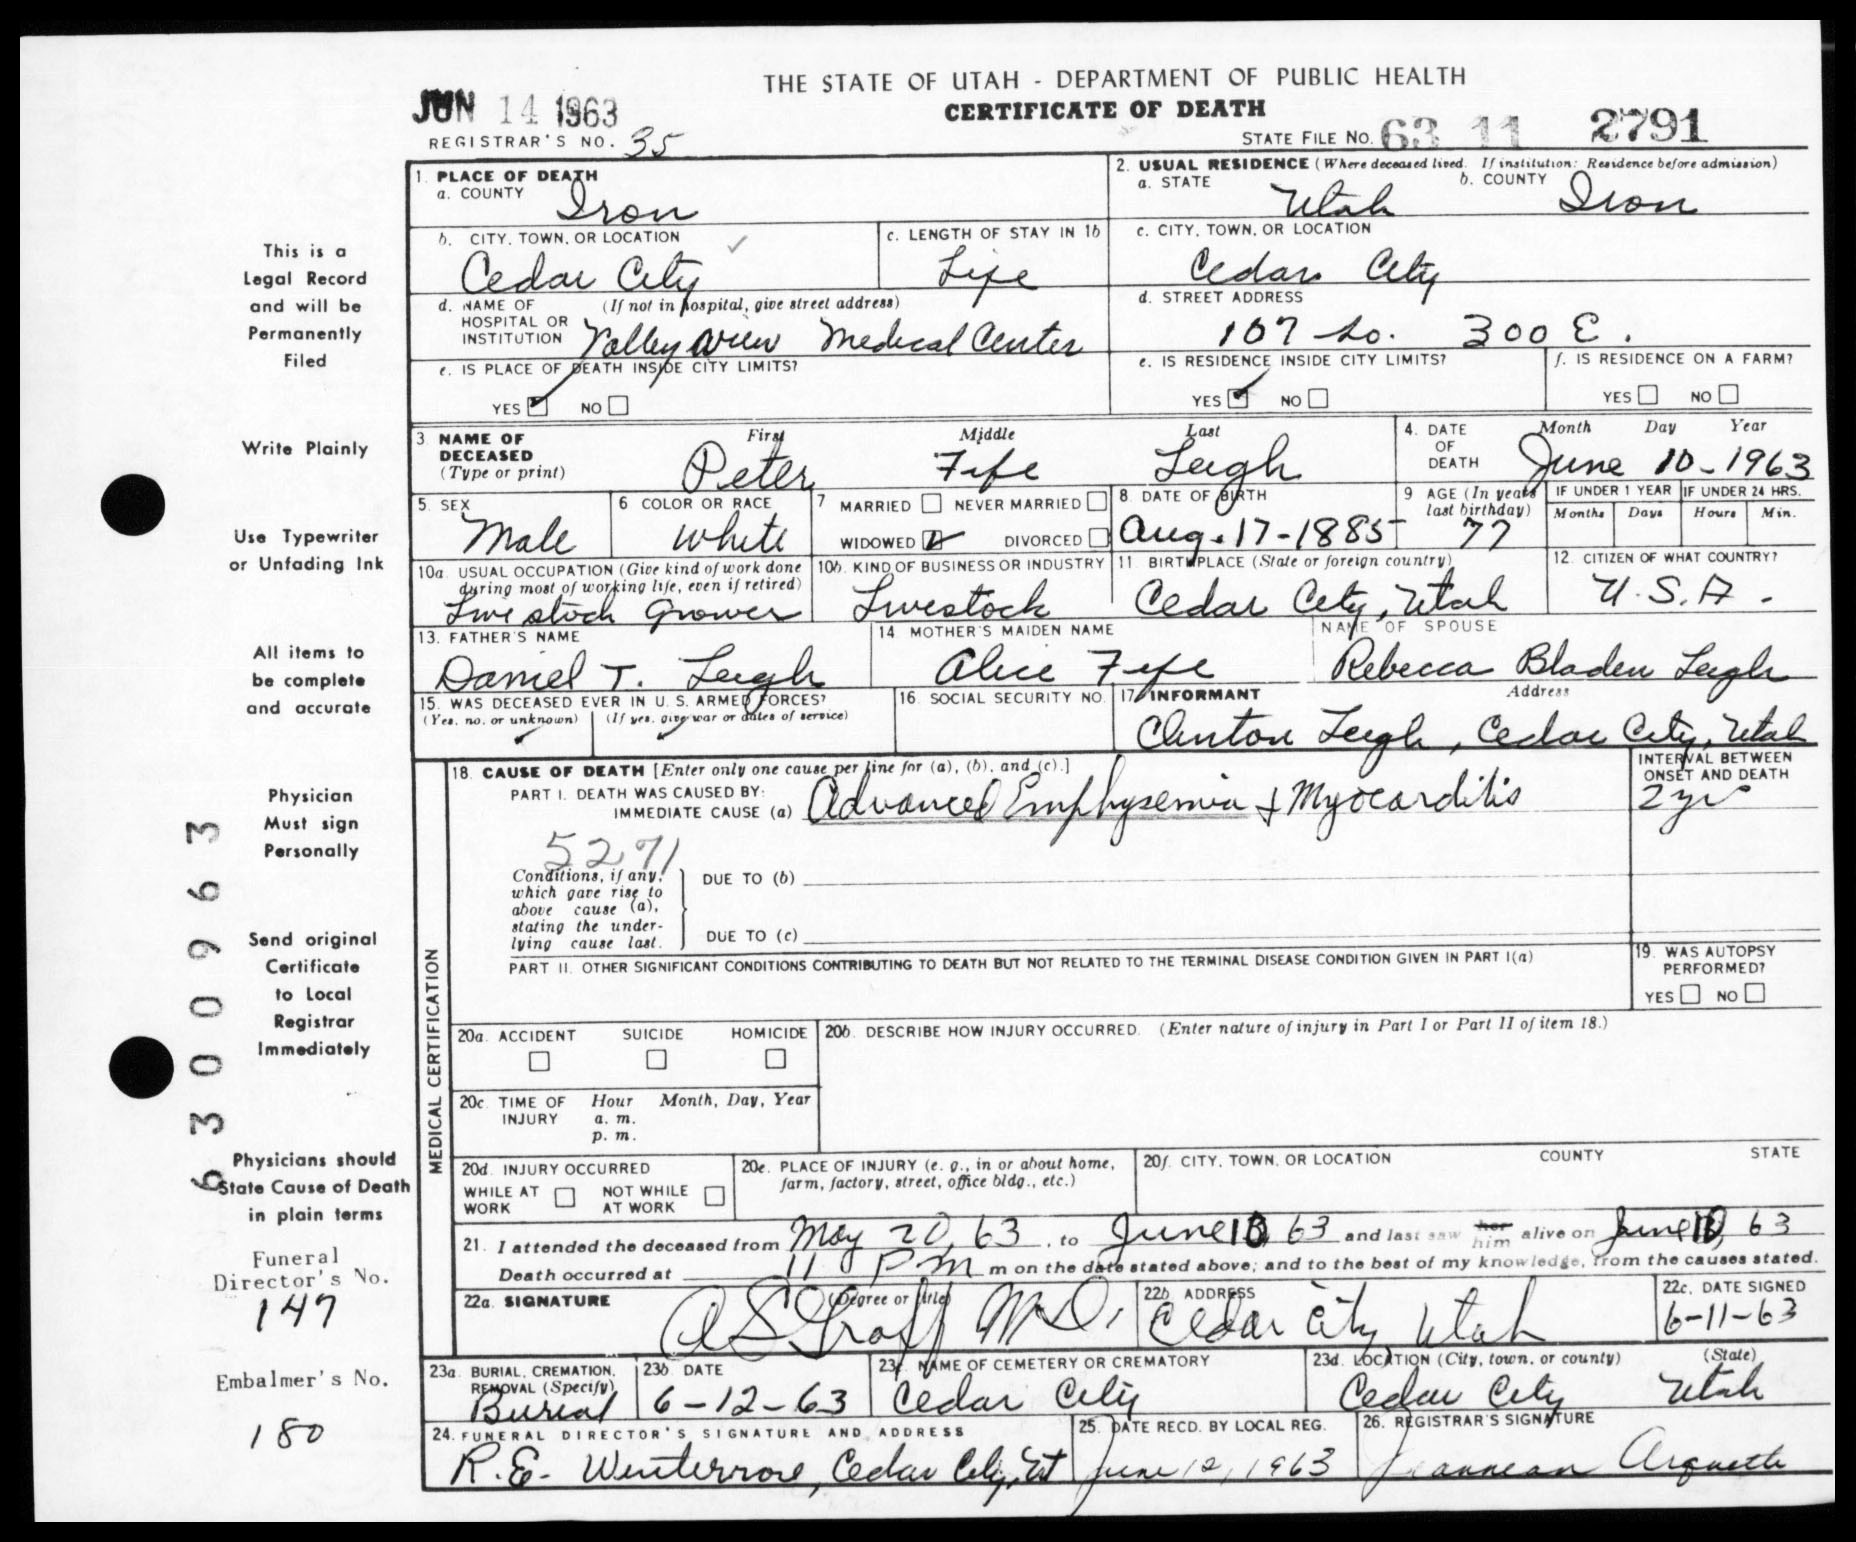 THE STATE OF UTAH - DEPARTMENT OF PUBLIC HEALTH
JUN 14 1963
CERTIFICATE OF DEATH
REGISTRAR'S NO. 35
STATE FILE NO. 63 11 2791
1. PLACE OF DEATH
a. COUNTY
Iron
2. USUAL RESIDENCE (Where deceased lived. If institution: Residence before admission)
a. STATE Utah b. COUNTY Iron
b. CITY, TOWN, OR LOCATION
Cedar City
c. LENGTH OF STAY IN 1b
Life
c. CITY, TOWN, OR LOCATION
Cedar City
d. NAME OF HOSPITAL OR INSTITUTION (If not in hospital, give street address)
Valley View Medical Center
d. STREET ADDRESS
167 So. 300 E.
e. IS PLACE OF DEATH INSIDE CITY LIMITS?
YES ☑ NO ☐
e. IS RESIDENCE INSIDE CITY LIMITS?
YES ☑ NO ☐
f. IS RESIDENCE ON A FARM?
YES ☐ NO ☐
3. NAME OF DECEASED (Type or print)
First Middle Last
Peter Fife Leigh
4. DATE OF DEATH
Month Day Year
June 10-1963
5. SEX
Male
6 COLOR OR RACE
White
7 MARRIED ☐ NEVER MARRIED ☐
WIDOWED ☑ DIVORCED ☐
8 DATE OF BIRTH
Aug. 17-1885
9 AGE (In years last birthday)
77
IF UNDER 1 YEAR
Months Days
IF UNDER 24 HRS.
Hours Min.
10a. USUAL OCCUPATION (Give kind of work done during most of working life, even if retired)
Live stock Grower
10b. KIND OF BUSINESS OR INDUSTRY
Livestock
11 BIRTHPLACE (State or foreign country)
Cedar City, Utah
12. CITIZEN OF WHAT COUNTRY?
U.S.A.
13. FATHER'S NAME
Daniel T. Leigh
14. MOTHER'S MAIDEN NAME
Alice Fife
NAME OF SPOUSE
Rebecca Bladen Leigh
15. WAS DECEASED EVER IN U. S. ARMED FORCES?
(Yes, no, or unknown) (If yes, give war or dates of service)
16. SOCIAL SECURITY NO.
17. INFORMANT Address
Clinton Leigh, Cedar City, Utah
MEDICAL CERTIFICATION
18. CAUSE OF DEATH [Enter only one cause per line for (a), (b), and (c).]
PART I. DEATH WAS CAUSED BY:
IMMEDIATE CAUSE (a) Advanced Emphysemia & Myocarditis
INTERVAL BETWEEN ONSET AND DEATH
2 yrs
5271
Conditions, if any, which gave rise to above cause (a), stating the underlying cause last.
DUE TO (b)
DUE TO (c)
PART II. OTHER SIGNIFICANT CONDITIONS CONTRIBUTING TO DEATH BUT NOT RELATED TO THE TERMINAL DISEASE CONDITION GIVEN IN PART I(a)
19. WAS AUTOPSY PERFORMED?
YES ☐ NO ☐
20a. ACCIDENT SUICIDE HOMICIDE
20b. DESCRIBE HOW INJURY OCCURRED. (Enter nature of injury in Part I or Part II of item 18.)
20c. TIME OF INJURY
Hour Month, Day, Year
a. m.
p. m.
20d. INJURY OCCURRED
WHILE AT WORK ☐ NOT WHILE AT WORK ☐
20e. PLACE OF INJURY (e. g., in or about home, farm, factory, street, office bldg., etc.)
20f. CITY, TOWN, OR LOCATION COUNTY STATE
21. I attended the deceased from May 20, 63, to June 10 63 and last saw her him alive on June 10, 63
Death occurred at 11 PM m on the date stated above; and to the best of my knowledge, from the causes stated.
22a. SIGNATURE (Degree or title)
M.D.
22b. ADDRESS
Cedar City Utah
22c. DATE SIGNED
6-11-63
23a. BURIAL, CREMATION, REMOVAL (Specify)
Burial
23b. DATE
6-12-63
23c. NAME OF CEMETERY OR CREMATORY
Cedar City
23d. LOCATION (City, town, or county) (State)
Cedar City Utah
24. FUNERAL DIRECTOR'S SIGNATURE AND ADDRESS
R.E. Winterrose, Cedar City, Ut
25. DATE RECD. BY LOCAL REG.
June 12, 1963
26. REGISTRAR'S SIGNATURE
Jeannean Arquette
This is a
Legal Record
and will be
Permanently
Filed
Write Plainly
Use Typewriter
or Unfading Ink
All items to
be complete
and accurate
Physician
Must sign
Personally
Send original
Certificate
to Local
Registrar
Immediately
Physicians should
State Cause of Death
in plain terms
Funeral
Director's No.
147
Embalmer's No.
180
6300963